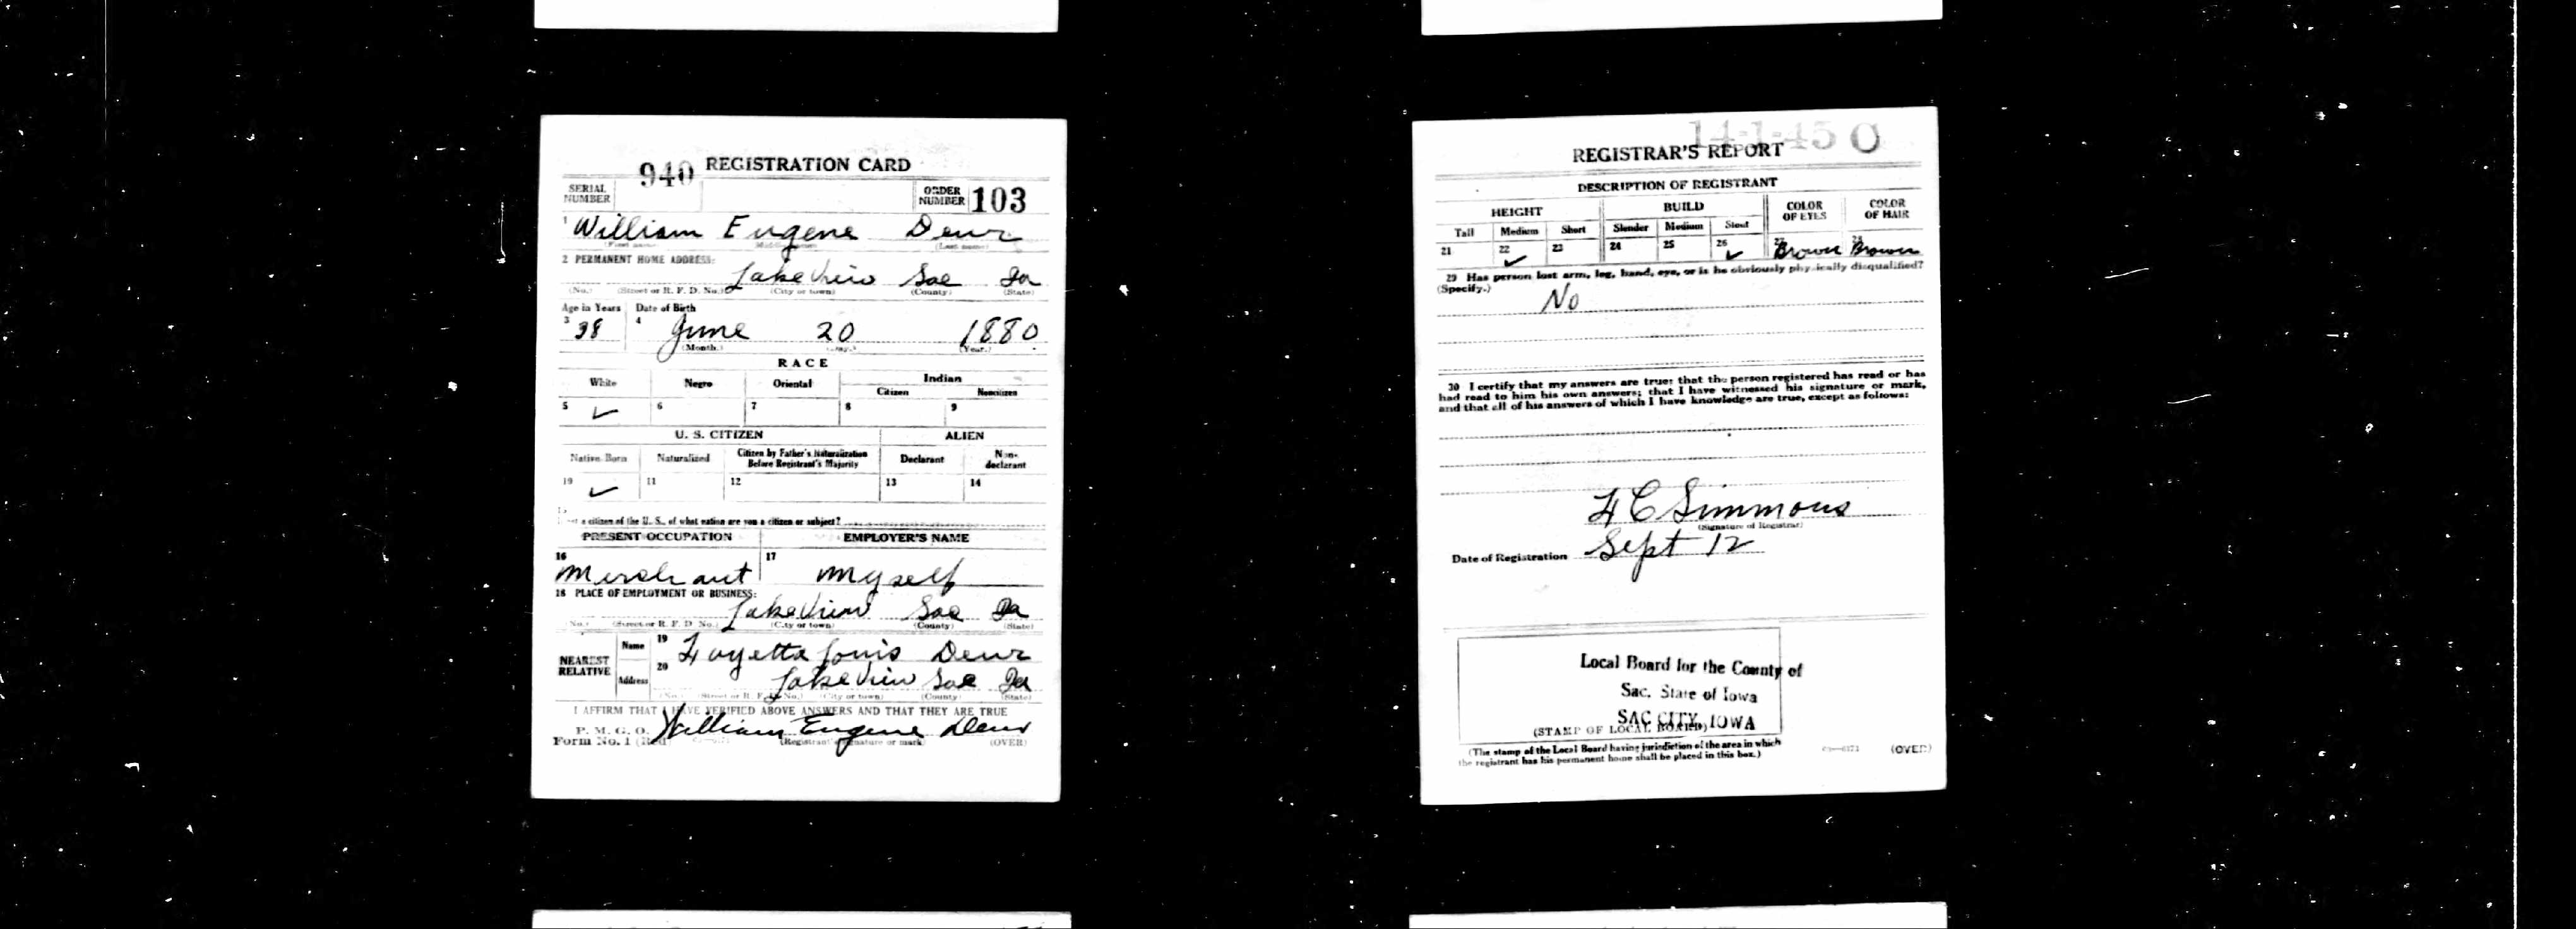 940 REGISTRATION CARD
SERIAL NUMBER
ORDER NUMBER 103
1 William Eugene
(First name) (Middle name) (Last name)
2 PERMANENT HOME ADDRESS:
Lake View Sac Ia
(No.) (Street or R. F. D. No.) (City or town) (County) (State)
Age in Years Date of Birth
3 38 4 June 20 1880
(Month.) (Day.) (Year.)
RACE
White Negro Oriental Indian
Citizen Noncitizen
5 ✓ 6 7 8 9
U. S. CITIZEN ALIEN
Native Born Naturalized Citizen by Father's Naturalization Before Registrant's Majority Declarant Non-declarant
10 ✓ 11 12 13 14
15
not a citizen of the U. S., of what nation are you a citizen or subject?
PRESENT OCCUPATION EMPLOYER'S NAME
16 Merchant 17 Myself
18 PLACE OF EMPLOYMENT OR BUSINESS:
Lake View Sac Ia
(No.) (Street or R. F. D. No.) (City or town) (County) (State)
NEAREST RELATIVE
Name 19
Address 20 Lake View Sac Ia
(No.) (Street or R. F. D. No.) (City or town) (County) (State)
I AFFIRM THAT I HAVE VERIFIED ABOVE ANSWERS AND THAT THEY ARE TRUE
P. M. G. O.
Form No. 1 (Red) William Eugene
(Registrant's signature or mark) (OVER)
14-1-45 O
REGISTRAR'S REPORT
DESCRIPTION OF REGISTRANT
HEIGHT BUILD COLOR OF EYES COLOR OF HAIR
Tall Medium Short Slender Medium Stout
21 22 ✓ 23 24 25 26 ✓ 27 Brown 28 Brown
29 Has person lost arm, leg, hand, eye, or is he obviously physically disqualified?
(Specify.)
No
30 I certify that my answers are true; that the person registered has read or has
had read to him his own answers; that I have witnessed his signature or mark,
and that all of his answers of which I have knowledge are true, except as follows:
Simmons
(Signature of Registrar)
Date of Registration Sept 12
Local Board for the County of
Sac, State of Iowa
SAC CITY, IOWA
(STAMP OF LOCAL BOARD)
(The stamp of the Local Board having jurisdiction of the area in which
the registrant has his permanent home shall be placed in this box.)
(OVER)